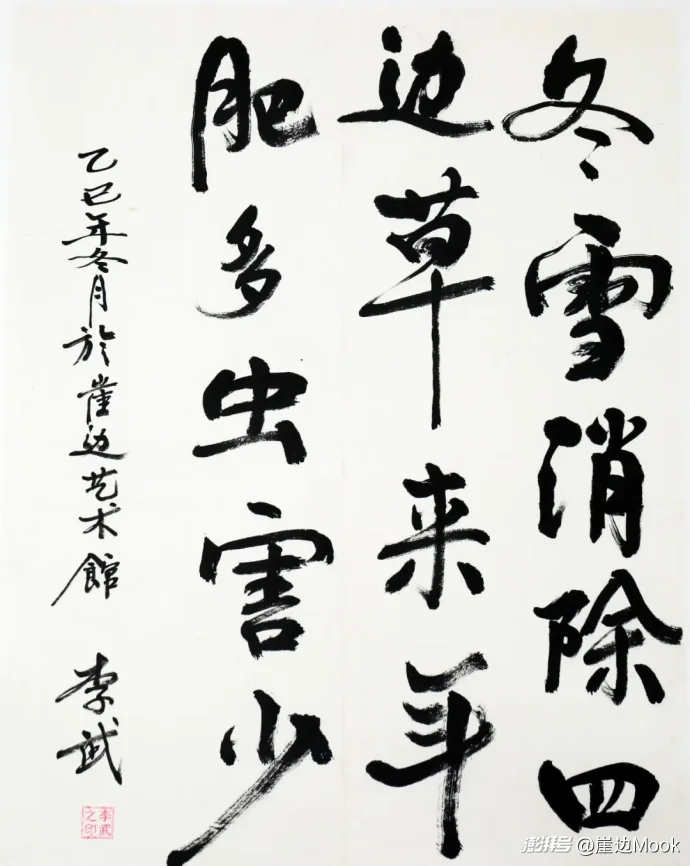 冬雪消除四
边草来年
肥多虫害少
乙巳年冬月於崖边艺术館
李武
李武之印
澎湃号@崖边Mook